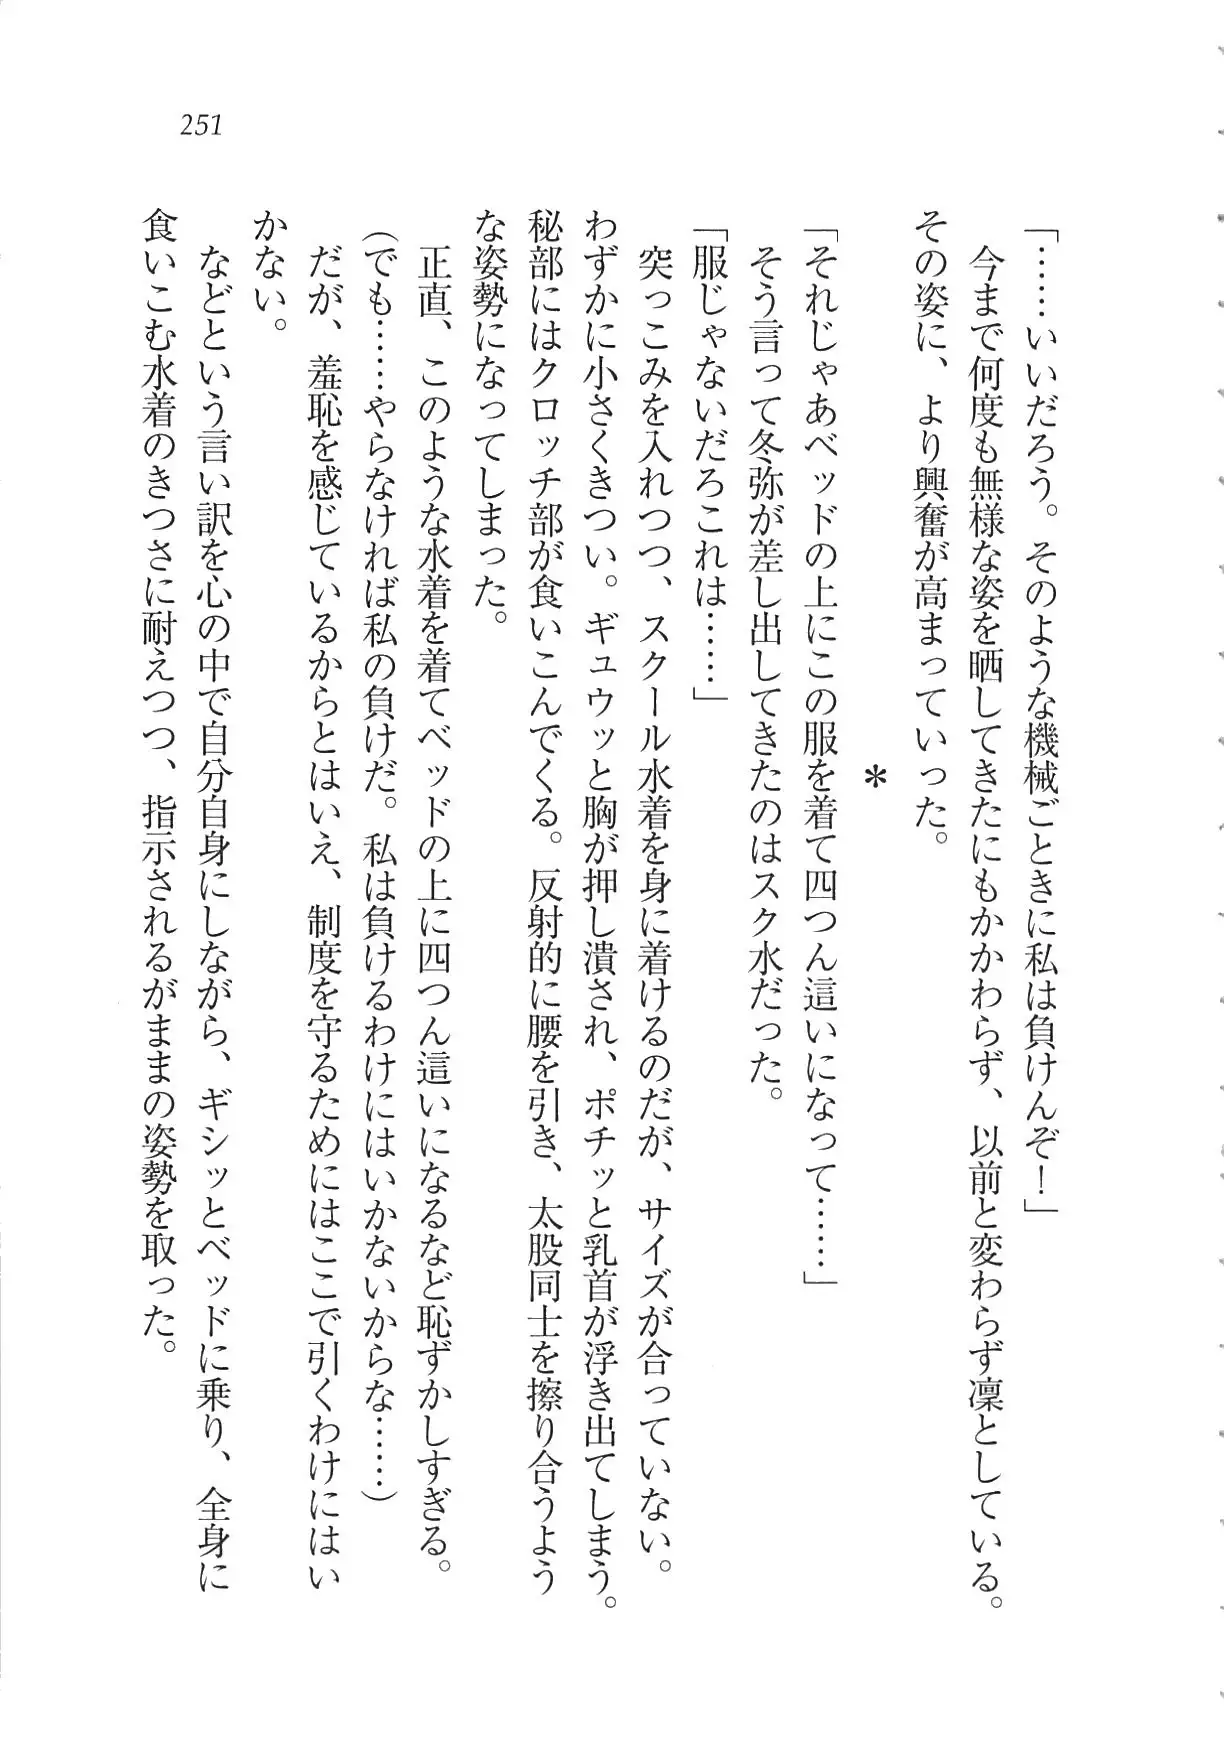 251
「……いいだろう。そのような機械ごときに私は負けんぞ！」
今まで何度も無様な姿を晒してきたにもかかわらず、以前と変わらず凛としている。
その姿に、より興奮が高まっていった。
＊
「それじゃあベッドの上にこの服を着て四つん這いになって……」
そう言って冬弥が差し出してきたのはスク水だった。
「服じゃないだろこれは……」
突っこみを入れつつ、スクール水着を身に着けるのだが、サイズが合っていない。
わずかに小さくきつい。ギュウッと胸が押し潰され、ポチッと乳首が浮き出てしまう。
秘部にはクロッチ部が食いこんでくる。反射的に腰を引き、太股同士を擦り合うよう
な姿勢になってしまった。
正直、このような水着を着てベッドの上に四つん這いになるなど恥ずかしすぎる。
（でも……やらなければ私の負けだ。私は負けるわけにはいかないからな……）
だが、羞恥を感じているからとはいえ、制度を守るためにはここで引くわけにはい
かない。
などという言い訳を心の中で自分自身にしながら、ギシッとベッドに乗り、全身に
食いこむ水着のきつさに耐えつつ、指示されるがままの姿勢を取った。